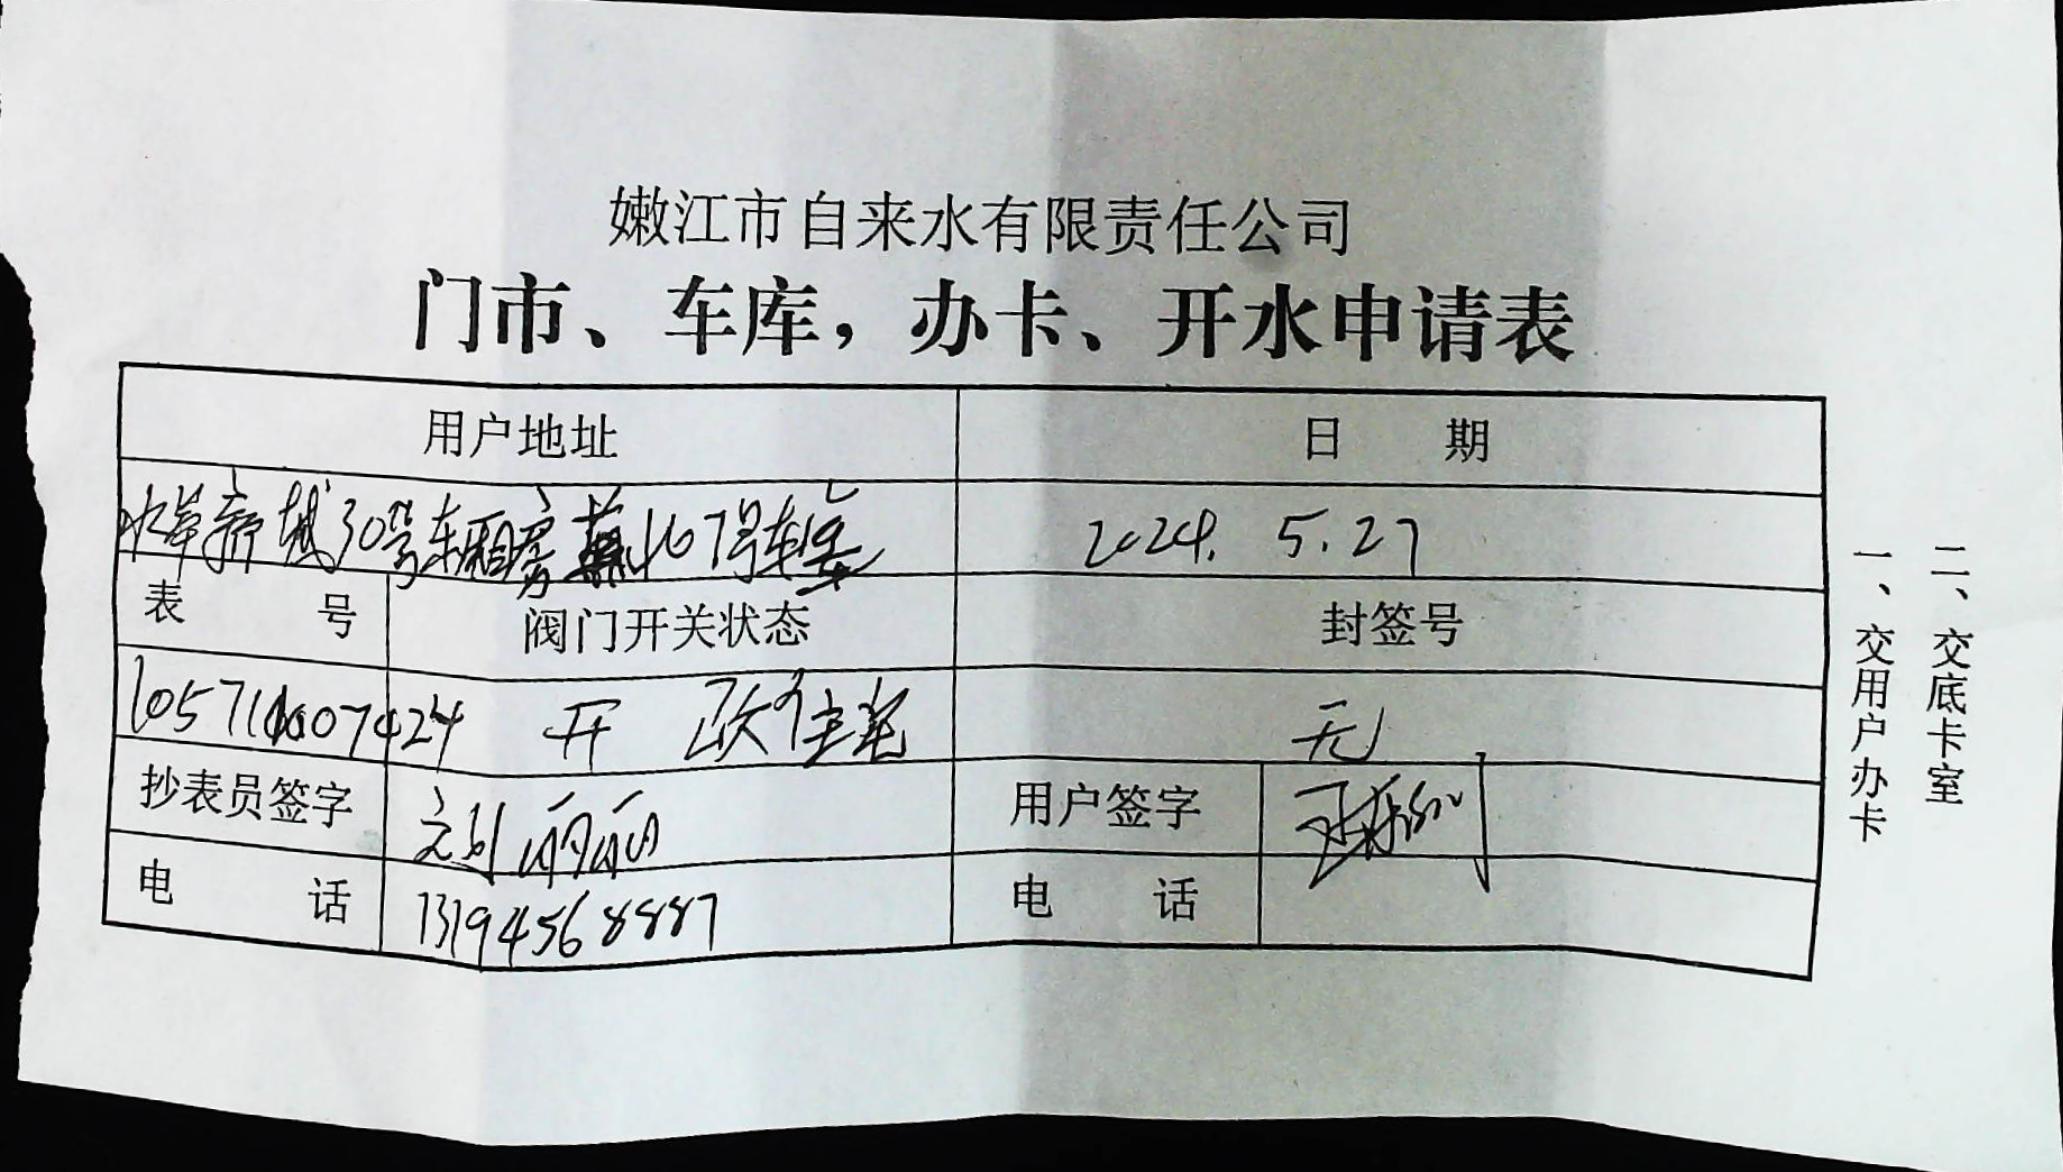 嫩江市自来水有限责任公司
门市、车库，办卡、开水申请表
用户地址 日 期
水岸新城30号东厢房 167号车库
2024. 5. 27
表 号 阀门开关状态 封签号
开 无
抄表员签字 丽丽 用户签字
电 话 13194568887 电 话
一、交用户办卡
二、交底卡室